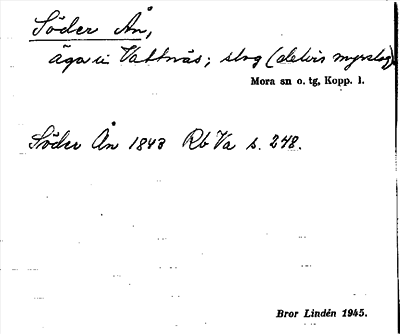 Söder Ån,
äga i Vattnäs; skog (delvis myrskog)
Mora sn o. tg, Kopp. l.
Söder Ån 1843 Rb Va s. 248.
Bror Lindén 1945.